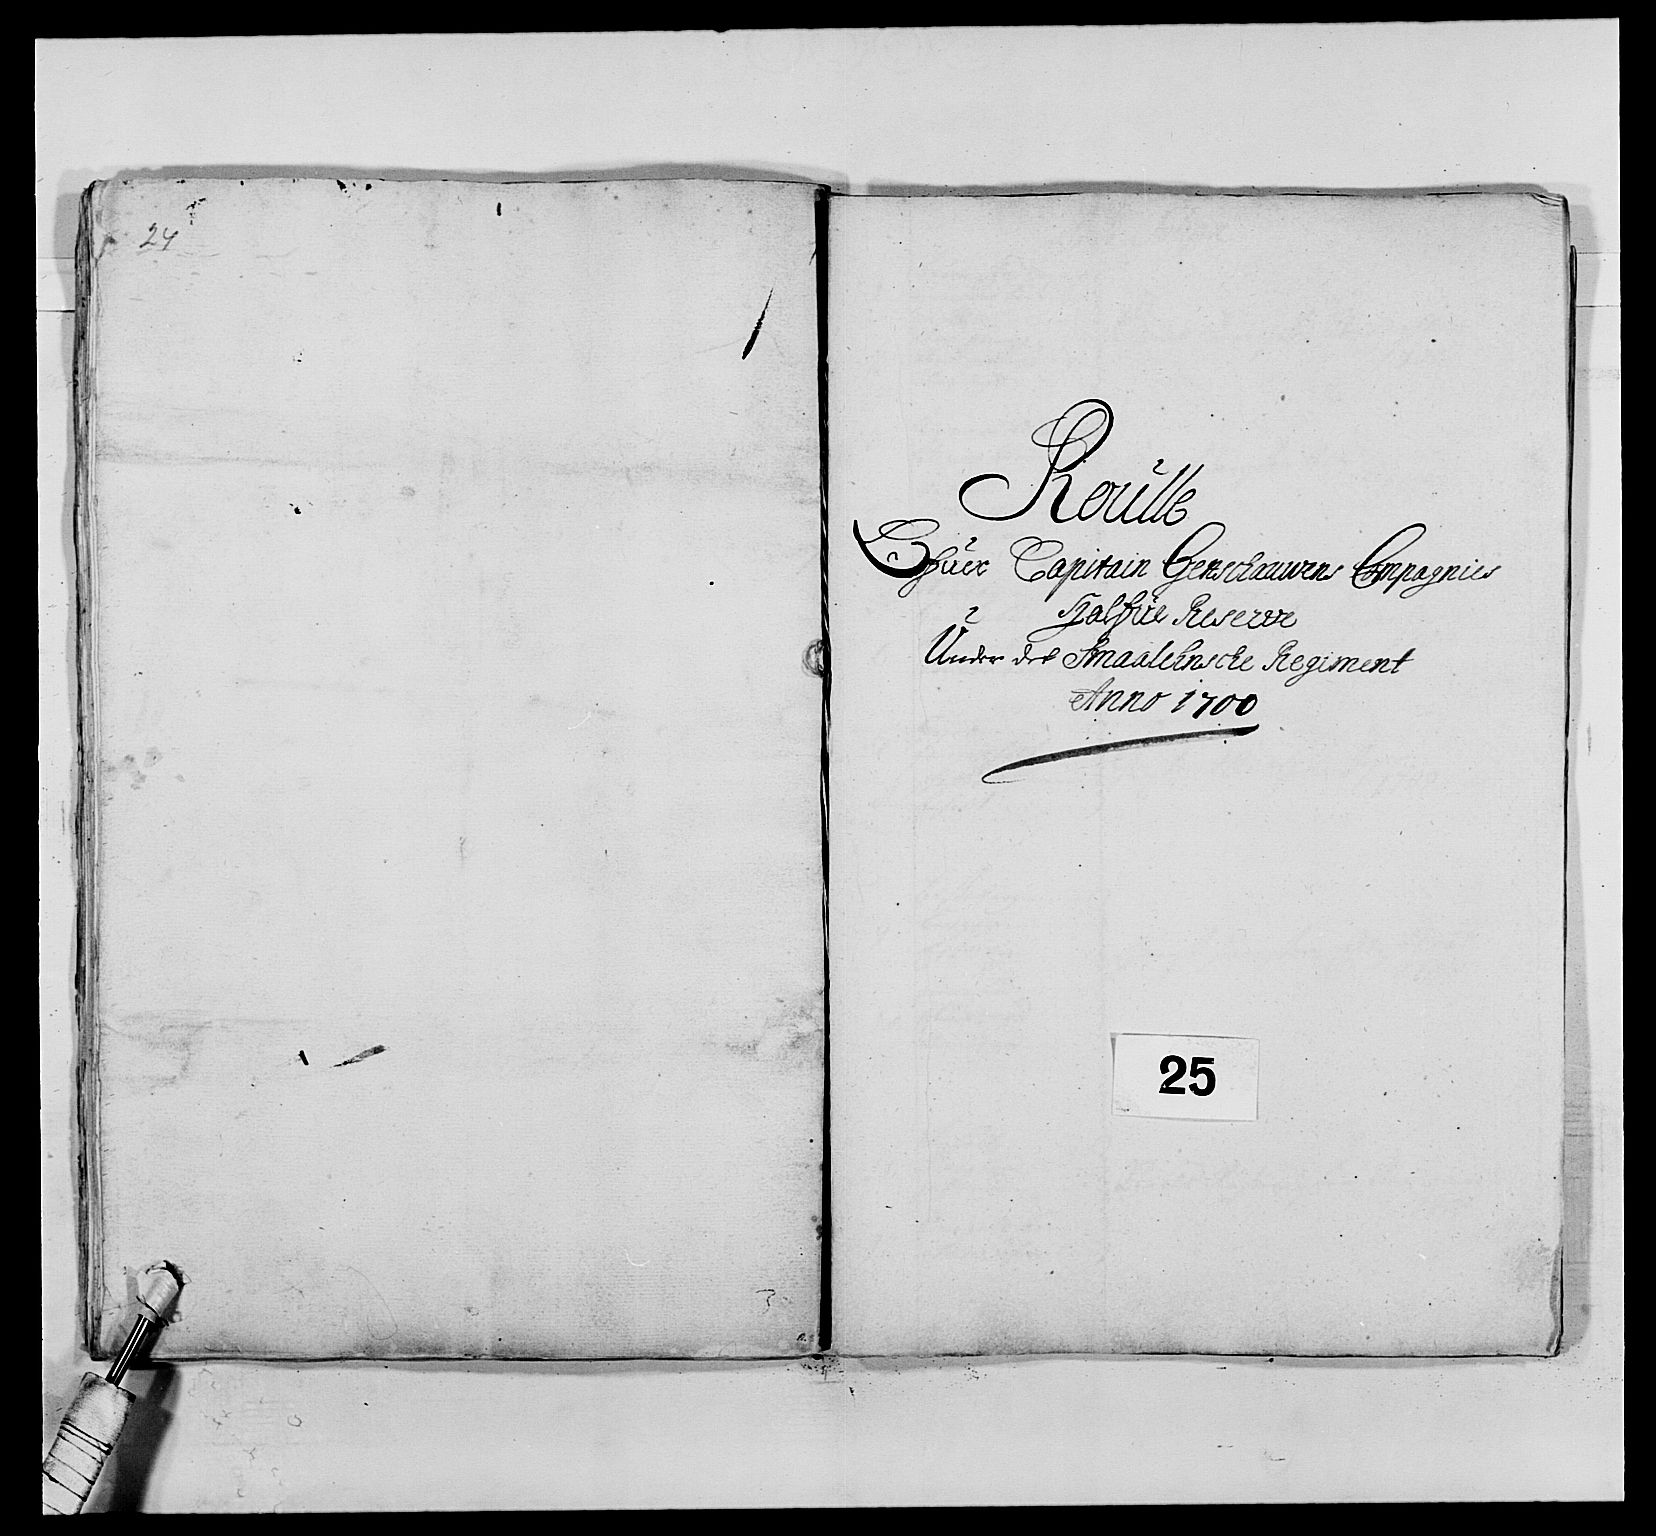 24
Roulle
Ofuer Capitain Gerschouwens Compagnies
Halfue Reserve
Under det Smaalehnsche Regiment
Anno 1700
25